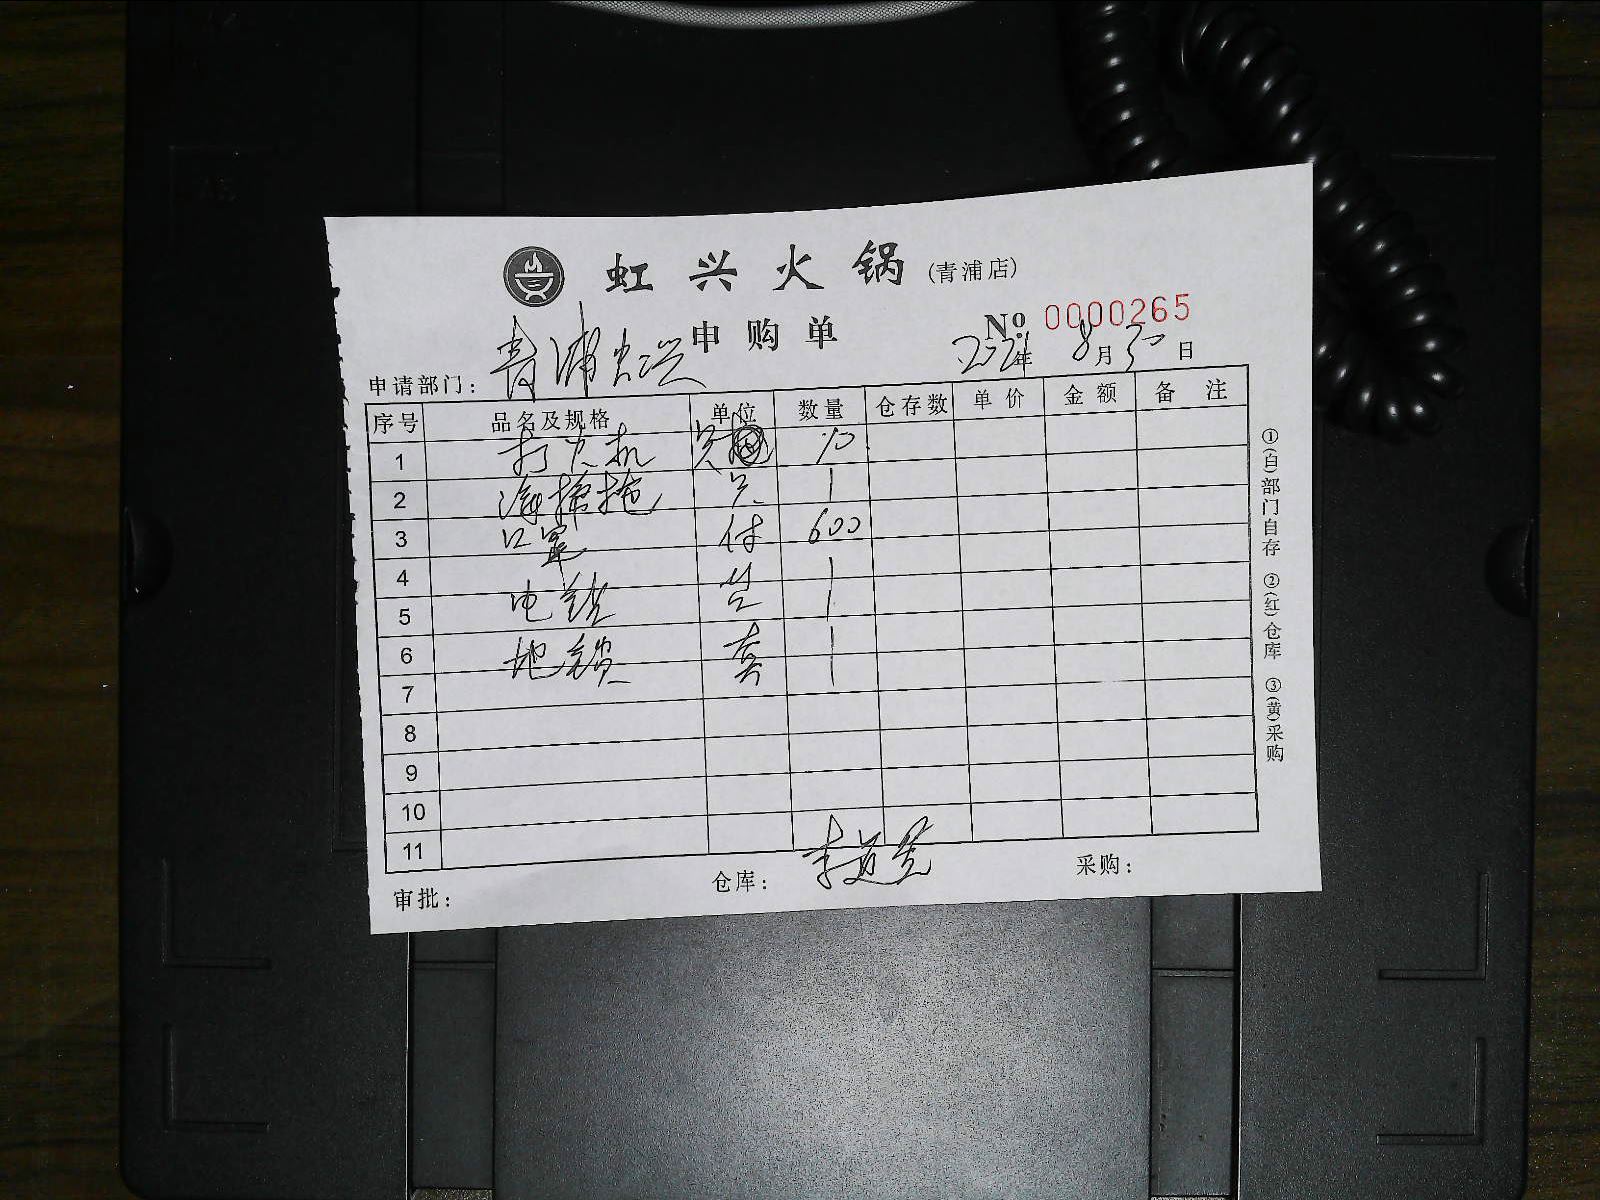 虹兴火锅(青浦店)
申购单
No. 0000265
申请部门: 青浦虹兴
2021年8月30日
序号 品名及规格 单位 数量 仓存数 单价 金额 备注
1 打火机 只
2 海棉拖 只 1
3 口罩 付 600
4
5 电 1
6 地锁 套 1
7
8
9
10
11
审批: 仓库: 采购:
①(白)部门自存 ②(红)仓库 ③(黄)采购